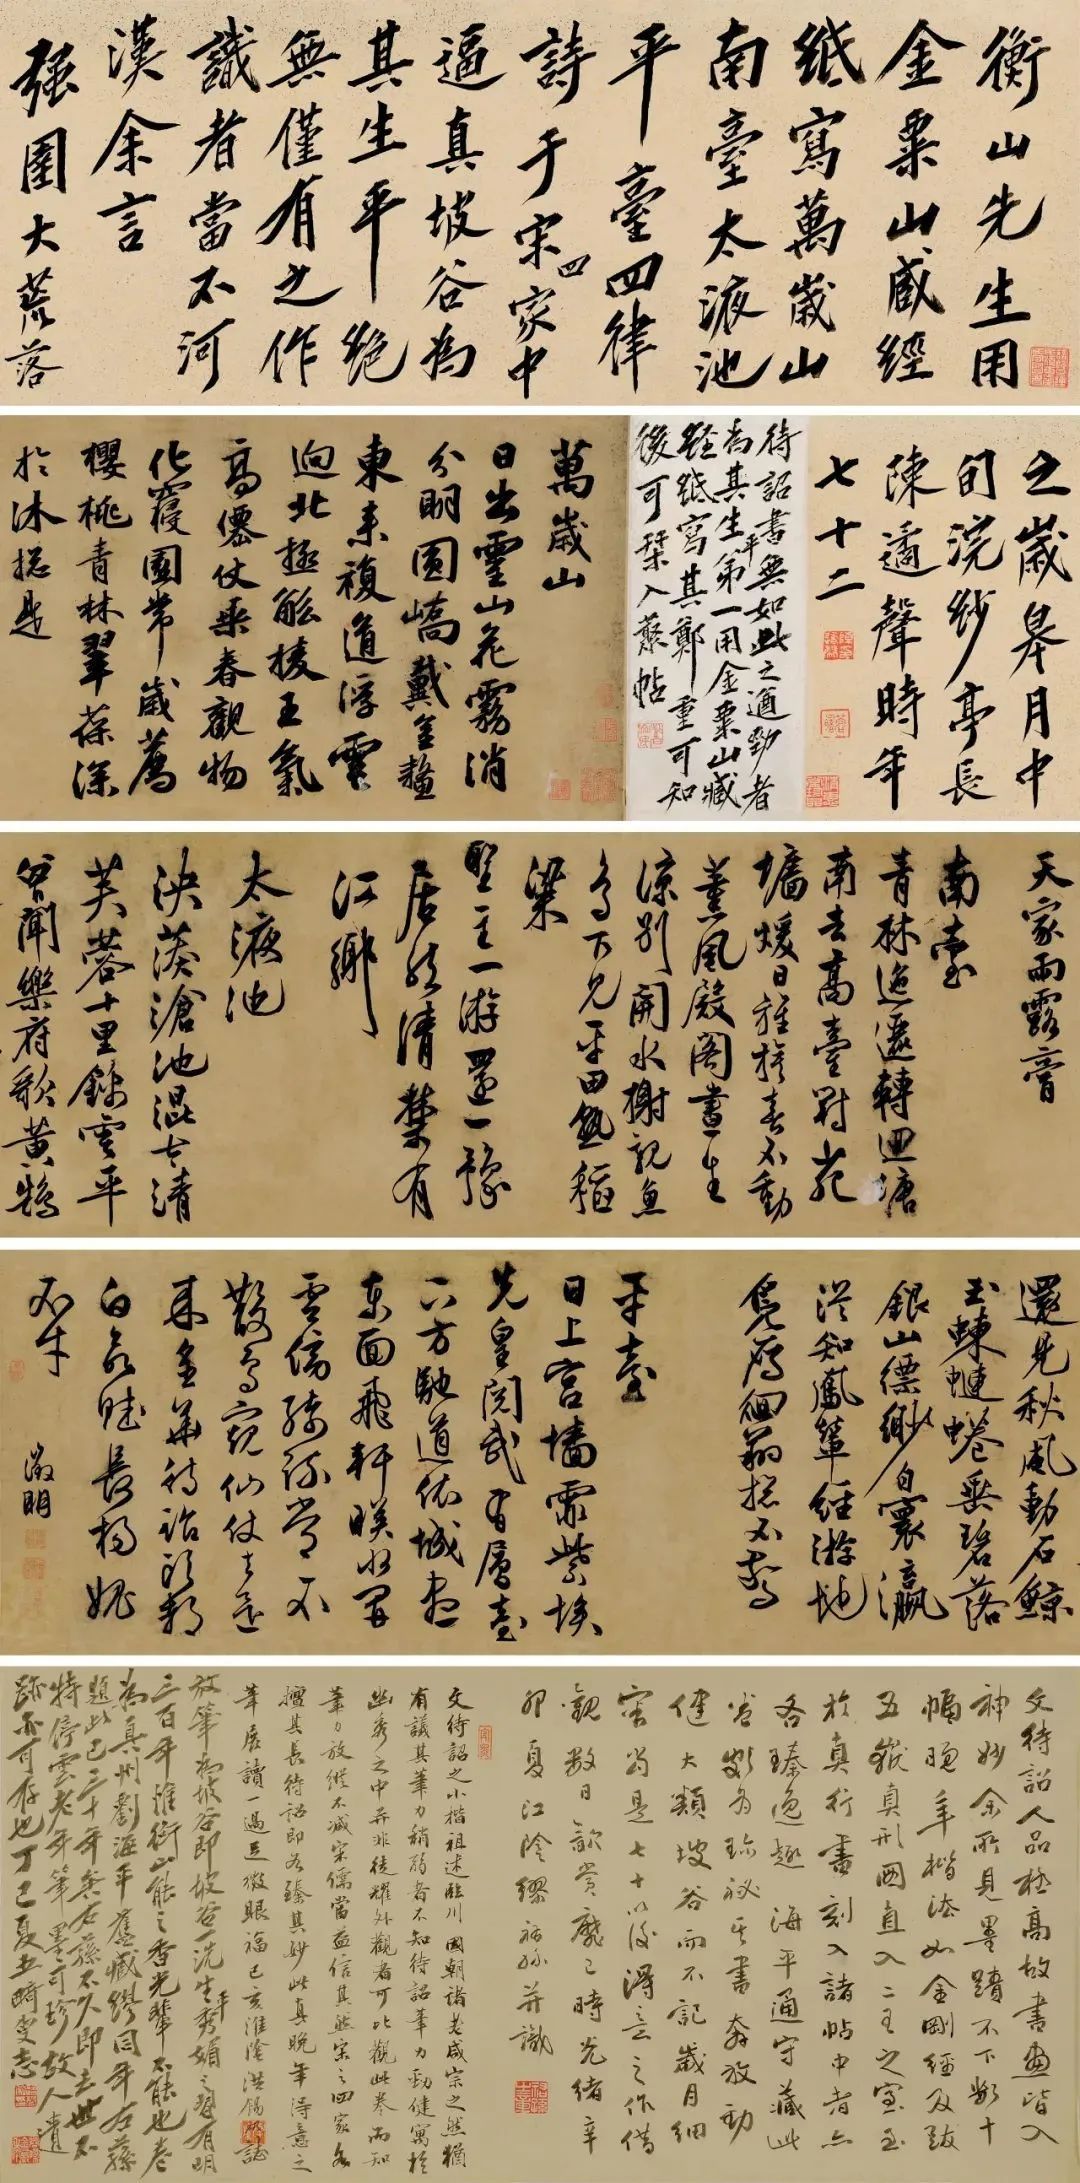 衡山先生用
金粟山藏經
紙寫萬歲山
南臺太液池
平臺四律
詩于宋四家中
逼真坡谷為
其生平絕
無僅有之作
識者當不河
漢余言
強圉大荒落
之歲皋月中
旬浣紗亭長
陳遹聲時年
七十二
待詔書無如此之遒勁者
為其生平第一用金粟山藏
經紙寫其鄭重可知
後可槧入叢帖
萬歲山
日出靈山花霧消
分明圓嶠戴金鼇
東來複道浮雲
迥北極觚棱王氣
高僊仗乘春觀物
化寢園常歲薦
櫻桃青林翠葆深
於沐總是
天家雨露膏
南臺
青林迤邐轉迴塘
南去高臺對苑
墻煖日旌旗春不動
薰風殿閣晝生
涼別開水榭親魚
鳥下見平田熟稻
粱
聖主一游還一豫
居然清禁有
江鄉
太液池
泱漭滄池混太清
芙蓉十里錦雲平
曾聞樂府歌黃鵠
還見秋風動石鯨
玉蝀蜷蜷垂碧落
銀山縹緲自寰瀛
從知鳳輦經游地
鳧雁徊翔總不驚
平臺
日上宮墻霏紫埃
先皇閱武有層臺
下方馳道依城盡
東面飛軒映水開
雲傍綺疏常不
散鳥窺仙仗去還
來金華待詔頭都
白欲賦長楊媿
不才
徵明
文待詔人品極高故書畫皆入
神妙余所見墨蹟不下數十
幅晚年楷法如金剛經及跋
五嶽真形圖直入二王之室至
於真行書刻入諸帖中者亦
各臻逸趣海平通守藏此
卷最為珍祕其書奔放勁
健大類坡谷而不記歲月細
審當是七十以後得意之作借
觀數日歎賞靡已時光緒辛
卯夏江陰繆祐孫并識
文待詔之小楷祖述臨川國朝諸老咸宗之然猶
有議其筆力稍弱者不知待詔筆力勁健寓於
幽秀之中并非徒耀外觀者可比觀此卷而知
筆力放縱不減宋儒當益信其然宋之四家各
擅其長待詔即各臻其妙此真晚年得意之
筆展讀一過足徵眼福己亥淮陰洪錫
放筆為坡谷即坡谷一洗生平秀媚之習有明
三百年惟衡山能之香光輩不能也卷
為真州劉海平舊藏繆同年右孫
題此已三十年矣右孫不久即去世不
特停雲老年筆墨可珍故人遺
跡亦可存也丁巳夏五畸叟志